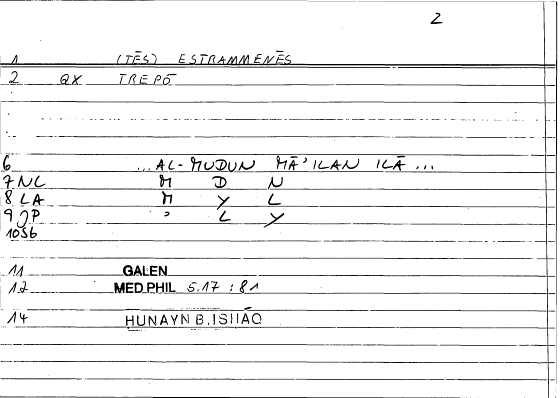 2
1 (TĒS) ESTRAMMENĒS
2 QX TREPŌ
6 ...AL-MUDUN MĀ'ILAN ILĀ ...
7 NL M D N
8 LA M Y L
9 JP ' L Y
10 SG
11 GALEN
12 MED.PHIL 5.17 : 81
14 HUNAYN B.ISHĀQ